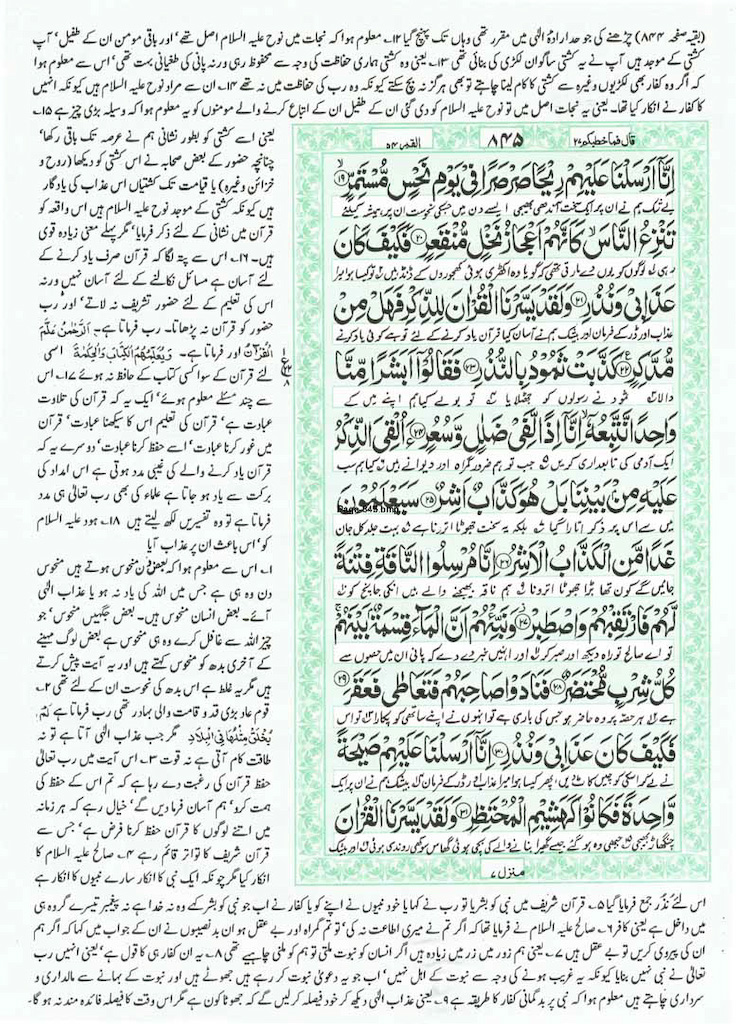 (بقیہ صفحہ ۸۴۴) چڑھنے کی جو حد ارادۂ الٰہی میں مقرر تھی وہاں تک پہنچ گیا ۱۲۔ معلوم ہوا کہ نجات میں نوح علیہ السلام اصل تھے' اور باقی مومن ان کے طفیل' آپ
کشتی کے موجد ہیں آپ نے یہ کشتی ساگوان لکڑی کی بنائی تھی ۱۳۔ یعنی وہ کشتی ہماری حفاظت کی وجہ سے محفوظ رہی ورنہ پانی کی طغیانی بہت تھی' اس سے معلوم ہوا
کہ اگر وہ کفار بھی لکڑیوں وغیرہ سے کشتی کا کام لینا چاہتے تو بھی ہرگز نہ بچ سکتے کیونکہ وہ رب کی حفاظت میں نہ تھے ۱۴۔ ان سے مراد نوح علیہ السلام ہیں کیونکہ انہیں
کا کفار نے انکار کیا تھا۔ یعنی یہ نجات اصل میں تو نوح علیہ السلام کو دی گئی ان کے طفیل ان کے اتباع کرنے والے مومنوں کو یہ معلوم ہوا کہ وسیلہ بڑی چیز ہے ۱۵۔
یعنی اسے کشتی کو بطور نشانی ہم نے عرصہ تک باقی رکھا'
چنانچہ حضور کے بعض صحابہ نے اس کشتی کو دیکھا (روح و
خزائن وغیرہ) یا قیامت تک کشتیاں اس عذاب کی یادگار
ہیں کیونکہ کشتی کے موجد نوح علیہ السلام ہیں اس واقعہ کو
قرآن میں نشانی کے لئے ذکر فرمایا' مگر پہلے معنی زیادہ قوی
ہیں۔ ۱۶۔ اس سے پتہ لگا کہ قرآن صرف یاد کرنے کے
لئے آسان ہے مسائل نکالنے کے لئے آسان نہیں ورنہ
اس کی تعلیم کے لئے حضور تشریف نہ لاتے' اور رب
حضور کو قرآن نہ پڑھاتا۔ رب فرماتا ہے۔ اَلرَّحْمٰنُ عَلَّمَ
الْقُرْاٰنَ اور فرماتا ہے۔ وَيُعَلِّمُهُمُ الْكِتٰبَ وَالْحِكْمَةَ اسی
لئے قرآن کے سوا کسی کتاب کے حافظ نہ ہوئے ۱۷۔ اس
سے چند مسئلے معلوم ہوئے' ایک یہ کہ قرآن کی تلاوت
عبادت ہے' قرآن کی تعلیم اس کا سیکھنا عبادت' اس
میں غور کرنا عبادت' اسے حفظ کرنا عبادت' دوسرے یہ کہ
قرآن یاد کرنے والے کی غیبی مدد ہوتی ہے اس امداد کی
برکت سے یاد ہو جاتا ہے علماء کی بھی رب تعالیٰ ہی مدد
فرماتا ہے تو وہ تفسیریں لکھ لیتے ہیں ۱۸۔ ہود علیہ السلام
کو' اس باعث ان پر عذاب آیا
۱۔ اس سے معلوم ہوا کہ بعض دن منحوس ہوتے ہیں منحوس
دن وہ ہی ہے جس میں اللہ کی یاد نہ ہو یا عذاب الٰہی
آئے۔ بعض انسان منحوس ہیں۔ بعض جگہیں منحوس' جو
چیز اللہ سے غافل کرے وہ ہی منحوس ہے بعض لوگ مہینے
کے آخری بدھ کو منحوس کہتے ہیں اور یہ آیت پیش کرتے
ہیں مگر یہ غلط ہے اس بدھ کی نحوست ان کے لئے تھی ۲۔
قوم عاد بڑی قد و قامت والی بہادر تھی رب فرماتا ہے لَمْ
يُخْلَقْ مِثْلُهَا فِي الْبِلَادِ مگر جب عذاب الٰہی آتا ہے تو نہ
طاقت کام آتی ہے نہ قوت ۳۔ اس آیت میں رب تعالیٰ
حفظ قرآن کی رغبت دے رہا ہے کہ تم اس کے حفظ کی
ہمت کرو' ہم آسان فرما دیں گے' خیال رہے کہ ہر زمانہ
میں اتنے لوگوں کا قرآن حفظ کرنا فرض ہے' جس سے
قرآن شریف کا تواتر قائم رہے ۴۔ صالح علیہ السلام کا
انکار کیا مگر چونکہ ایک نبی کا انکار سارے نبیوں کا انکار ہے
قال فما خطبکم ۲۷
۸۴۵
القمر ۵۴
اِنَّاۤ اَرْسَلْنَا عَلَيْهِمْ رِيْحًا صَرْصَرًا فِيْ يَوْمِ نَحْسٍ مُّسْتَمِرٍّ ۙ﴿۱۹﴾
بے شک ہم نے ان پر ایک سخت آندھی بھیجی ایسے دن میں جسکی نحوست ان پر ہمیشہ کیلئے
تَنْزِعُ النَّاسَ ۙ كَاَنَّهُمْ اَعْجَازُ نَخْلٍ مُّنْقَعِرٍ ﴿۲۰﴾ فَكَيْفَ كَانَ
رہی لوگوں کو یوں دے مارتی تھی کہ گویا وہ اکھڑی ہوئی کھجوروں کے ڈنڈ ہیں تو کیسا ہوا میرا
عَذَابِيْ وَ نُذُرِ ﴿۲۱﴾ وَلَقَدْ يَسَّرْنَا الْقُرْاٰنَ لِلذِّكْرِ فَهَلْ مِنْ
عذاب اور ڈر کے فرمان اور بیشک ہم نے آسان کیا قرآن یاد کرنے کے لئے تو ہے کوئی یاد کرنے
مُّدَّكِرٍ ﴿۲۲﴾ كَذَّبَتْ ثَمُوْدُ بِالنُّذُرِ ﴿۲۳﴾ فَقَالُوْۤا اَبَشَرًا مِّنَّا
والا ثمود نے رسولوں کو جھٹلایا تو بولے کیا ہم اپنے میں کے
وَاحِدًا نَّتَّبِعُهٗۤ ۙ اِنَّاۤ اِذًا لَّفِيْ ضَلٰلٍ وَّ سُعُرٍ ﴿۲۴﴾ ءَاُلْقِيَ الذِّكْرُ
ایک آدمی کی تابعداری کریں جب تو ہم ضرور گمراہ اور دیوانے ہیں کیا ہم سب
عَلَيْهِ مِنْۢ بَيْنِنَا بَلْ هُوَ كَذَّابٌ اَشِرٌ ﴿۲۵﴾ سَيَعْلَمُوْنَ
میں سے اس پر ذکر اتارا گیا بلکہ یہ سخت جھوٹا اترونا ہے بہت جلد کل جان
Page 845.bmp
غَدًا مَّنِ الْكَذَّابُ الْاَشِرُ ﴿۲۶﴾ اِنَّا مُرْسِلُوا النَّاقَةِ فِتْنَةً
جائیں گے کون تھا بڑا جھوٹا اترونا ہم ناقہ بھیجنے والے ہیں انکی جانچ کو
لَّهُمْ فَارْتَقِبْهُمْ وَاصْطَبِرْ ﴿۲۷﴾ وَنَبِّئْهُمْ اَنَّ الْمَآءَ قِسْمَةٌۢ بَيْنَهُمْ ۚ
تو اے صالح تو راہ دیکھ اور صبر کر اور انہیں خبر دے دے کہ پانی ان میں حصوں سے
كُلُّ شِرْبٍ مُّحْتَضَرٌ ﴿۲۸﴾ فَنَادَوْا صَاحِبَهُمْ فَتَعَاطٰى فَعَقَرَ ﴿۲۹﴾
ہے ہر حصہ پر وہ حاضر ہو جس کی باری ہے تو انہوں نے اپنے ساتھی کو پکارا تو اس
فَكَيْفَ كَانَ عَذَابِيْ وَ نُذُرِ ﴿۳۰﴾ اِنَّاۤ اَرْسَلْنَا عَلَيْهِمْ صَيْحَةً
نے لے کر اسکی کونچیں کاٹ دیں پھر کیسا ہوا میرا عذاب اور ڈر کے فرمان بیشک ہم نے ان پر ایک
وَّاحِدَةً فَكَانُوْا كَهَشِيْمِ الْمُحْتَظِرِ ﴿۳۱﴾ وَلَقَدْ يَسَّرْنَا الْقُرْاٰنَ
چنگھاڑ بھیجی جبھی وہ ہو گئے جیسے گھیرا بنانے والے کی بچی ہوئی گھاس سوکھی روندی ہوئی اور بیشک
منزل ۷
اس لئے نُذُر جمع فرمایا گیا ۵۔ قرآن شریف میں نبی کو بشر یا تو رب نے کہا یا خود نبیوں نے اپنے کو یا کفار نے اب جو نبی کو بشر کہے وہ نہ خدا ہے نہ پیغمبر تیسرے گروہ ہی
میں داخل ہے یعنی کافر ۶۔ صالح علیہ السلام نے فرمایا تھا کہ اگر تم نے میری اطاعت نہ کی' تو تم گمراہ اور بے عقل ہو ان بد نصیبوں نے ان کے جواب میں کہا کہ اگر ہم
ان کی پیروی کریں تو بے عقل ہیں ۷۔ یعنی ہم زور میں زر میں زیادہ ہیں اگر انسان کو نبوت ملتی تو ہم کو ملنی چاہیے تھی ۸۔ یہ ان کفار ہی کا قول ہے' یعنی انہیں رب
تعالیٰ نے نبی نہیں بنایا کیونکہ یہ غریب ہونے کی وجہ سے نبوت کے اہل نہیں' اب جو یہ دعویٰ نبوت کر رہے ہیں جھوٹے ہیں اور نبوت کے بہانے سے مالداری و
سرداری چاہتے ہیں معلوم ہوا کہ نبی پر بدگمانی کفار کا طریقہ ہے ۹۔ یعنی عذاب الٰہی دیکھ کر خود فیصلہ کر لیں گے کہ جھوٹا کون ہے مگر اس وقت کا فیصلہ فائدہ مند نہ ہو گا۔